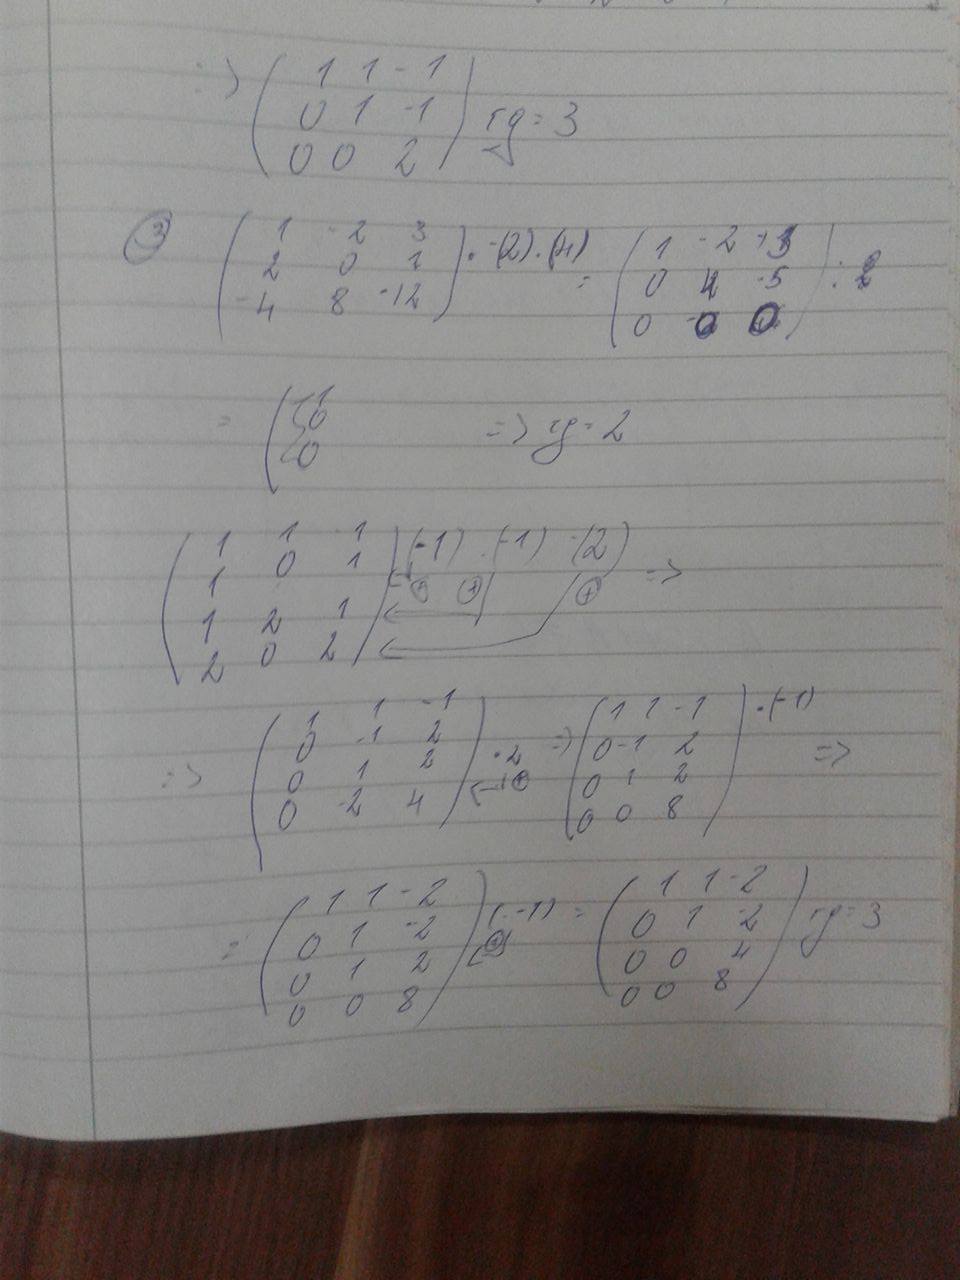 => ( 1 1 -1
0 1 -1
0 0 2 ) rg = 3
③ ( 1 -2 3
2 0 1
-4 8 -12 ) · -(2) · (4) = ( 1 -2 +3
0 4 -5
0 0 0 ) :
= ( 1
0
0 => rg = 2
( 1 1 -1
1 0 1
1 2 1
2 0 2 ) (-1) · (-1) -(2) =>
=> ( 1 1 -1
0 -1 2
0 1 2
0 -2 4 ) · 2 => ( 1 1 -1
0 -1 2
0 1 2
0 0 8 ) · (-1) =>
= ( 1 1 -2
0 1 -2
0 1 2
0 0 8 ) (· -1) = ( 1 1 -2
0 1 -2
0 0 4
0 0 8 ) rg = 3